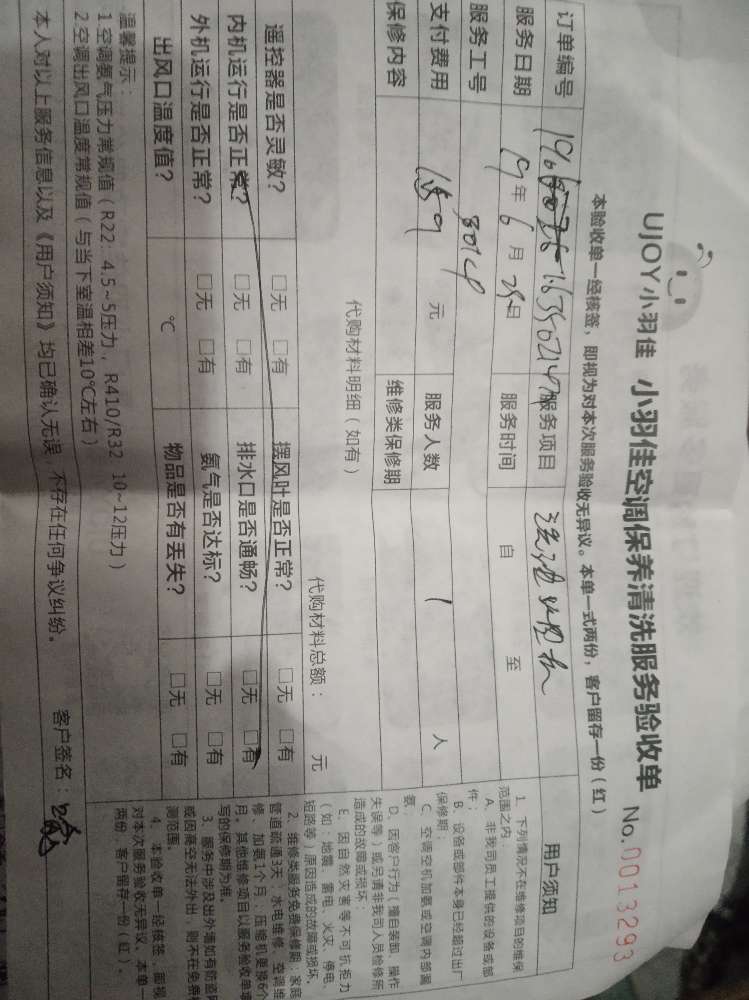 UJOY小羽佳 小羽佳空调保养清洗服务验收单 No.0013293
本验收单一经核签，即视为对本次服务验收无异议。本单一式两份，客户留存一份（红）
订单编号 服务项目
服务日期 19年6月25日 服务时间 自 至
服务工号 3014
支付费用 159 元 服务人数 1 人
保修内容 维修类保修期
代购材料明细（如有） 代购材料总额： 元
遥控器是否灵敏？ □无 □有 摆风叶是否正常？ □无 □有
内机运行是否正常？ □无 □有 排水口是否通畅？ □无 □有
外机运行是否正常？ □无 □有 氨气是否达标？ □无 □有
出风口温度值？ ℃ 物品是否有丢失？ □无 □有
温馨提示：
1空调氨气压力常规值（R22：4.5~5压力，R410/R32 10~12压力）
2空调出风口温度常规值（与当下室温相差10℃左右）
本人对以上服务信息以及《用户须知》均已确认无误，不存在任何争议纠纷。 客户签名：
用户须知
1、下列情况不在维修项目的维保
范围之内：
A、非我司员工提供的设备或部
件；
B、设备或部件本身已经超过出厂
保修期；
C、空调空机加氨或空调内部漏
氨．
D、因客户行为（擅自装卸、操作
失误等）或另请非我司人员检修所
造成的故障或损坏；
E、因自然灾害等不可抗拒力
（如：地震、雷电、火灾、停电、
短路等）原因造成的故障或损坏．
2、维修类服务免费保修期：家庭
管道疏通3天；水电维修、空调维
修、加氨1个月，压缩机更换6个
月，其他维修项目以服务验收单填
写的保修期为准。
3、服务中涉及出外墙如有防盗网
或因悬空无法外出，则不在免费检
测范围。
4、本验收单一经核签，即视
对本次服务验收无异议，本单一
两份，客户留存一份（红）．